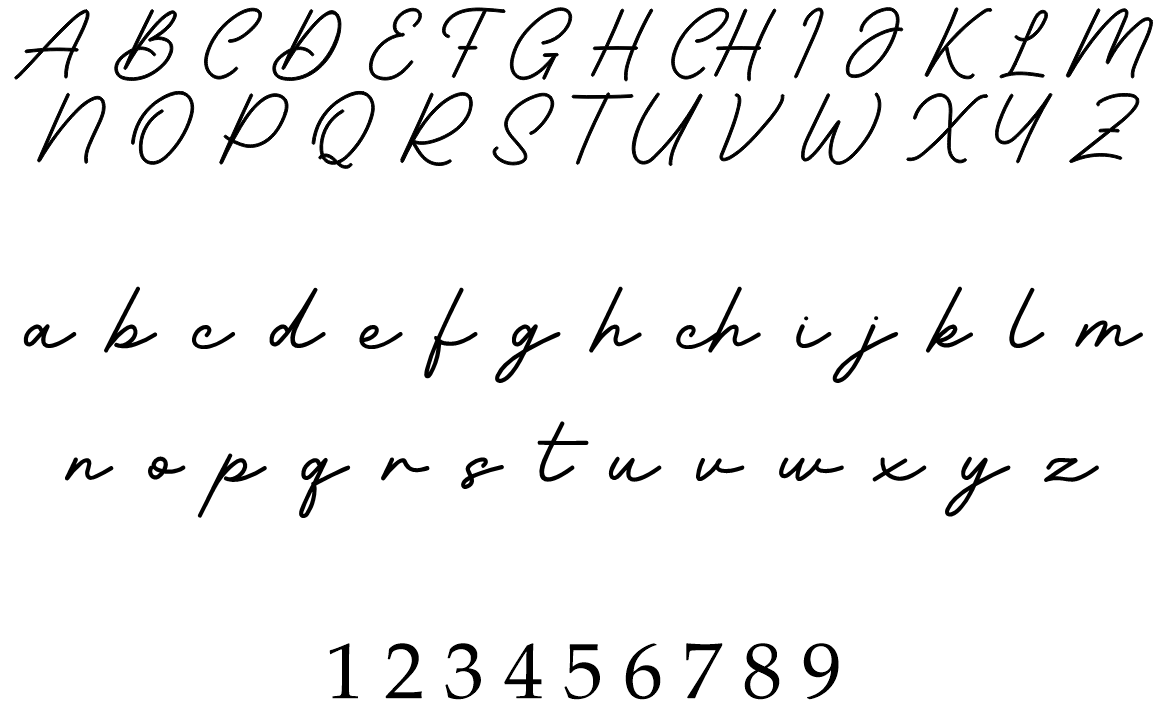 A B C D E F G H CH I J K L M
N O P Q R S T U V W X Y Z
a b c d e f g h ch i j k l m
n o p q r s t u v w x y z
1 2 3 4 5 6 7 8 9